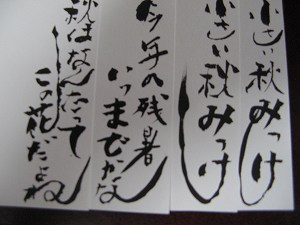 小さい秋みっけ
小さい秋みっけ
今年の残暑
いつまでかな
秋はなん言って
この花だよね